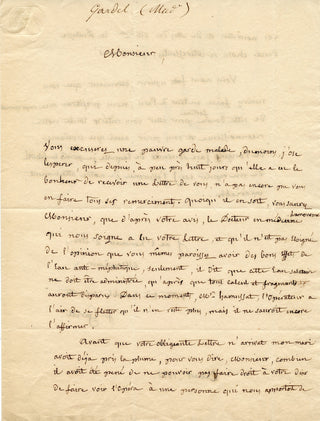 Gardel (Mde)
Monsieur
Vous excuserez une pauvre garde malade, du moins j'ose
l'esperer, qui depuis, à peu près huit jours qu'elle a eu le
bonheur de recevoir une lettre de vous, n'a pas encore pu vous
en faire tous ses remerciments. quoiqu'il en soit, vous saurez
Monsieur, que d'après votre avis, le Docteur en médecine
qui nous soigne a lu votre lettre et qu'il n'est pas éloigné
de l'opinion que vous même paroissez avoir des bons effets de
l'eau anti-méphitique, seulement, il dit que cette eau
ne doit être administrée qu'après que tout calcul et fragments
auront disparu. Dans ce moment, Mr. l'Operateur a
l'air de se flatter qu'il n'en reste plus, mais il ne sauroit encore
l'affirmer.
Avant que votre obligeante lettre n'arrivat mon mari
avoit déja pris la plume, pour vous dire, Monsieur, combien
il avoit été peiné de ne pouvoir pas faire droit à votre desir
de faire voir l'Opera à une personne qui nous apportoit de